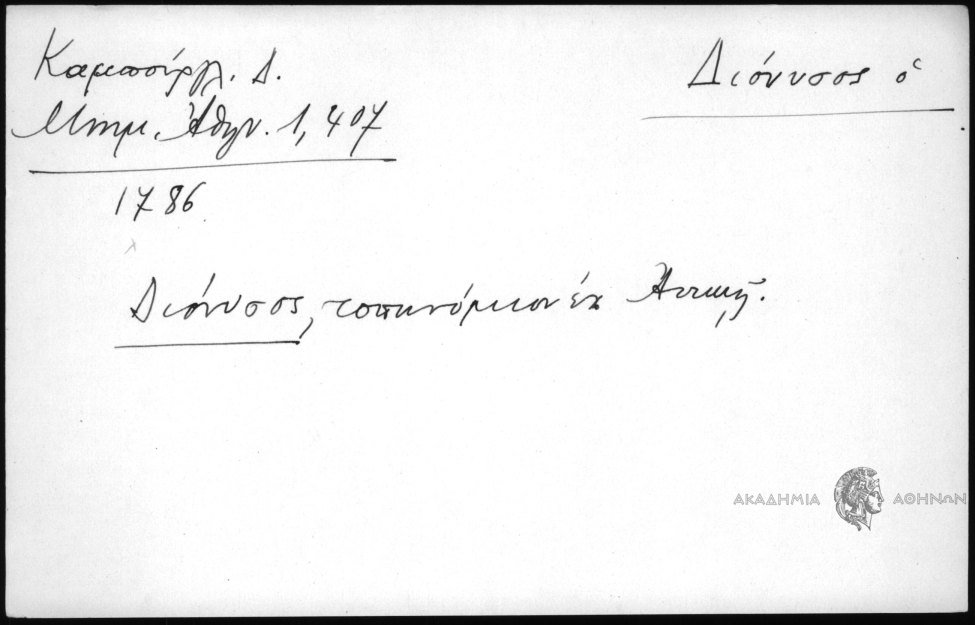 Καμπούργλ. Δ.
Μνημ. Ἀθην. 1, 407
1786
Διόνυσος ὁ
Διόνυσος, τοπωνύμιον ἐν Ἀττικῇ.
ΑΚΑΔΗΜΙΑ ΑΘΗΝΩΝ